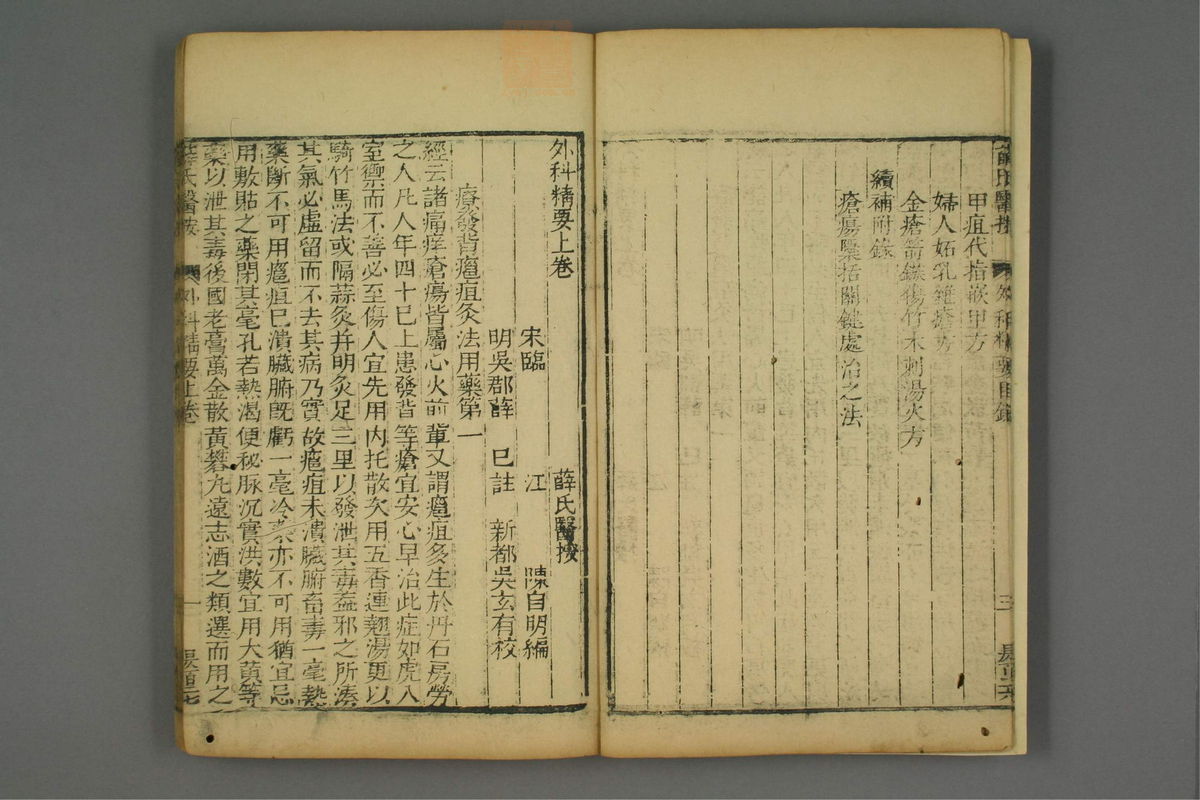 薛氏醫按 外科精要目錄 三
甲疽代指嵌甲方
婦人妬乳雜瘡方
金瘡箭鏃傷竹木刺湯火方
續補附錄
瘡瘍檃括關鍵處治之法
外科精要上卷 薛氏醫按
宋臨 江 陳自明編
明吳郡薛 巳註 新都吳玄有校
療發背癰疽灸法用藥第一
經云諸痛痒瘡瘍皆屬心火前輩又謂癰疽多生於丹石房勞
之人凡人年四十巳上患發背等瘡宜安心早治此症如虎入
室禦而不善必至傷人宜先用內托散次用五香連翹湯更以
騎竹馬法或隔蒜灸并明灸足三里以發泄其毒蓋邪之所湊
其氣必虛留而不去其病乃實故癰疽未潰臟腑畜毒一毫熱
藥斷不可用癰疽巳潰臟腑既虧一毫冷藥亦不可用猶宜忌
用敷貼之藥閉其毫孔若熱渴便秘脉沉實洪數宜用大黃等
藥以泄其毒後國老膏萬金散黃芪丸遠志酒之類選而用之
薛氏醫按 外科精要上卷 一